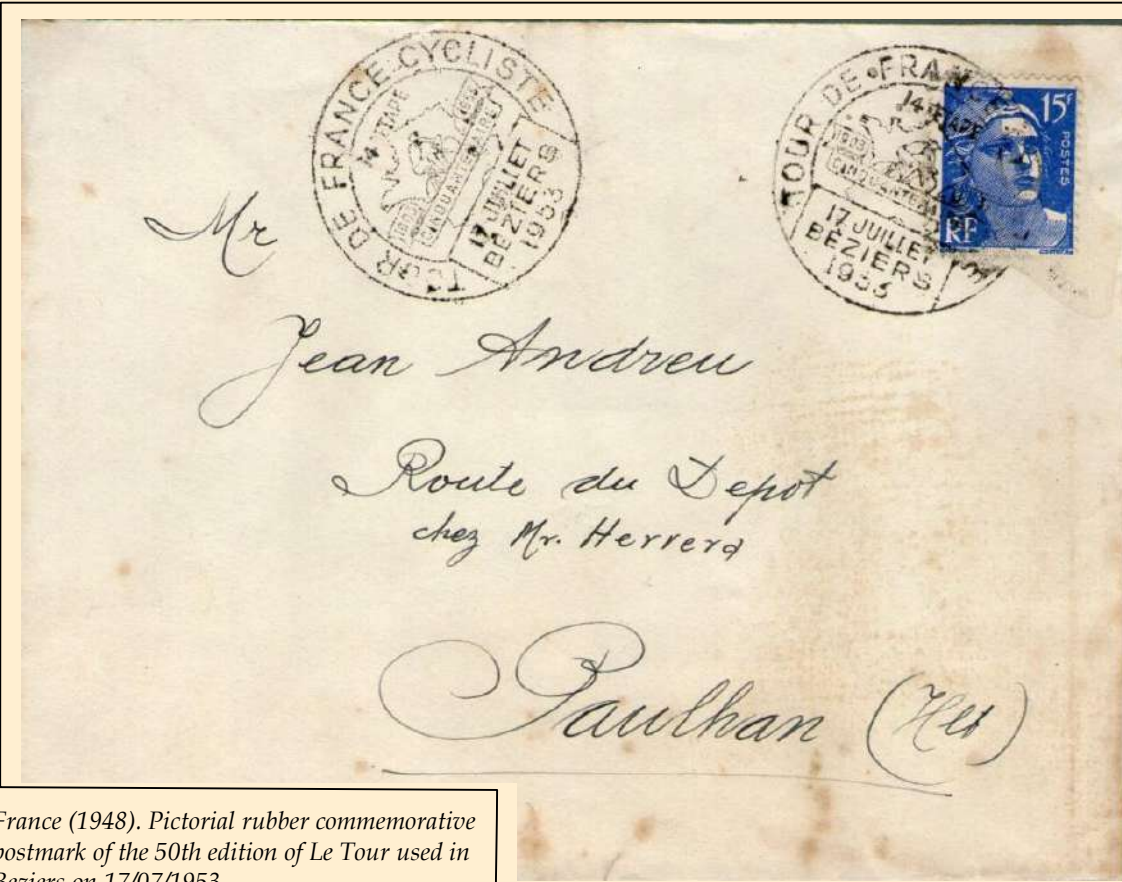 TOUR DE FRANCE CYCLISTE
ETAPE
CINQUANTENAIRE
17 JUILLET
BÉZIERS
1953
TOUR DE FRANCE
14 ETAPE
1903
17 JUILLET
BÉZIERS
1953
15F
POSTES
RF
Mr
Jean Andreu
Route du Depot
chez Mr. Herrera
Paulhan
France (1948). Pictorial rubber commemorative
postmark of the 50th edition of Le Tour used in
Beziers on 17/07/1953